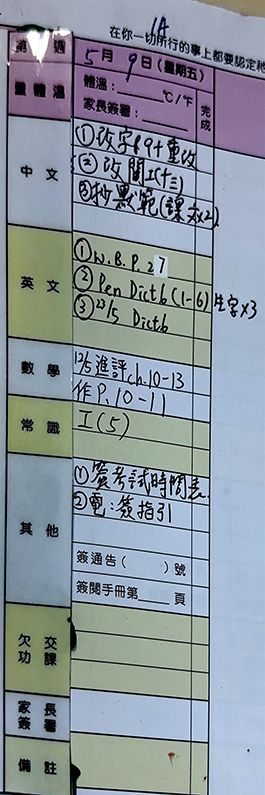 1A
在你一切所行的事上都要認定祂
第 週
5月9日(星期五)
量體溫
體溫:____℃/℉
家長簽署:____
完成
中文
①改字P.9+重改
②改閱工(十三)
③抄默範(課文2)
英文
①W.B.P.27
②Pen Dict6 (1-6) 生字x3
③22/5 Dict6
數學
12/5進評ch.10-13
作P.10-11
常識
工(5)
其他
①簽考試時間表
②電:簽指引
簽通告( )號
簽閱手冊第____頁
欠交功課
家長簽署
備註